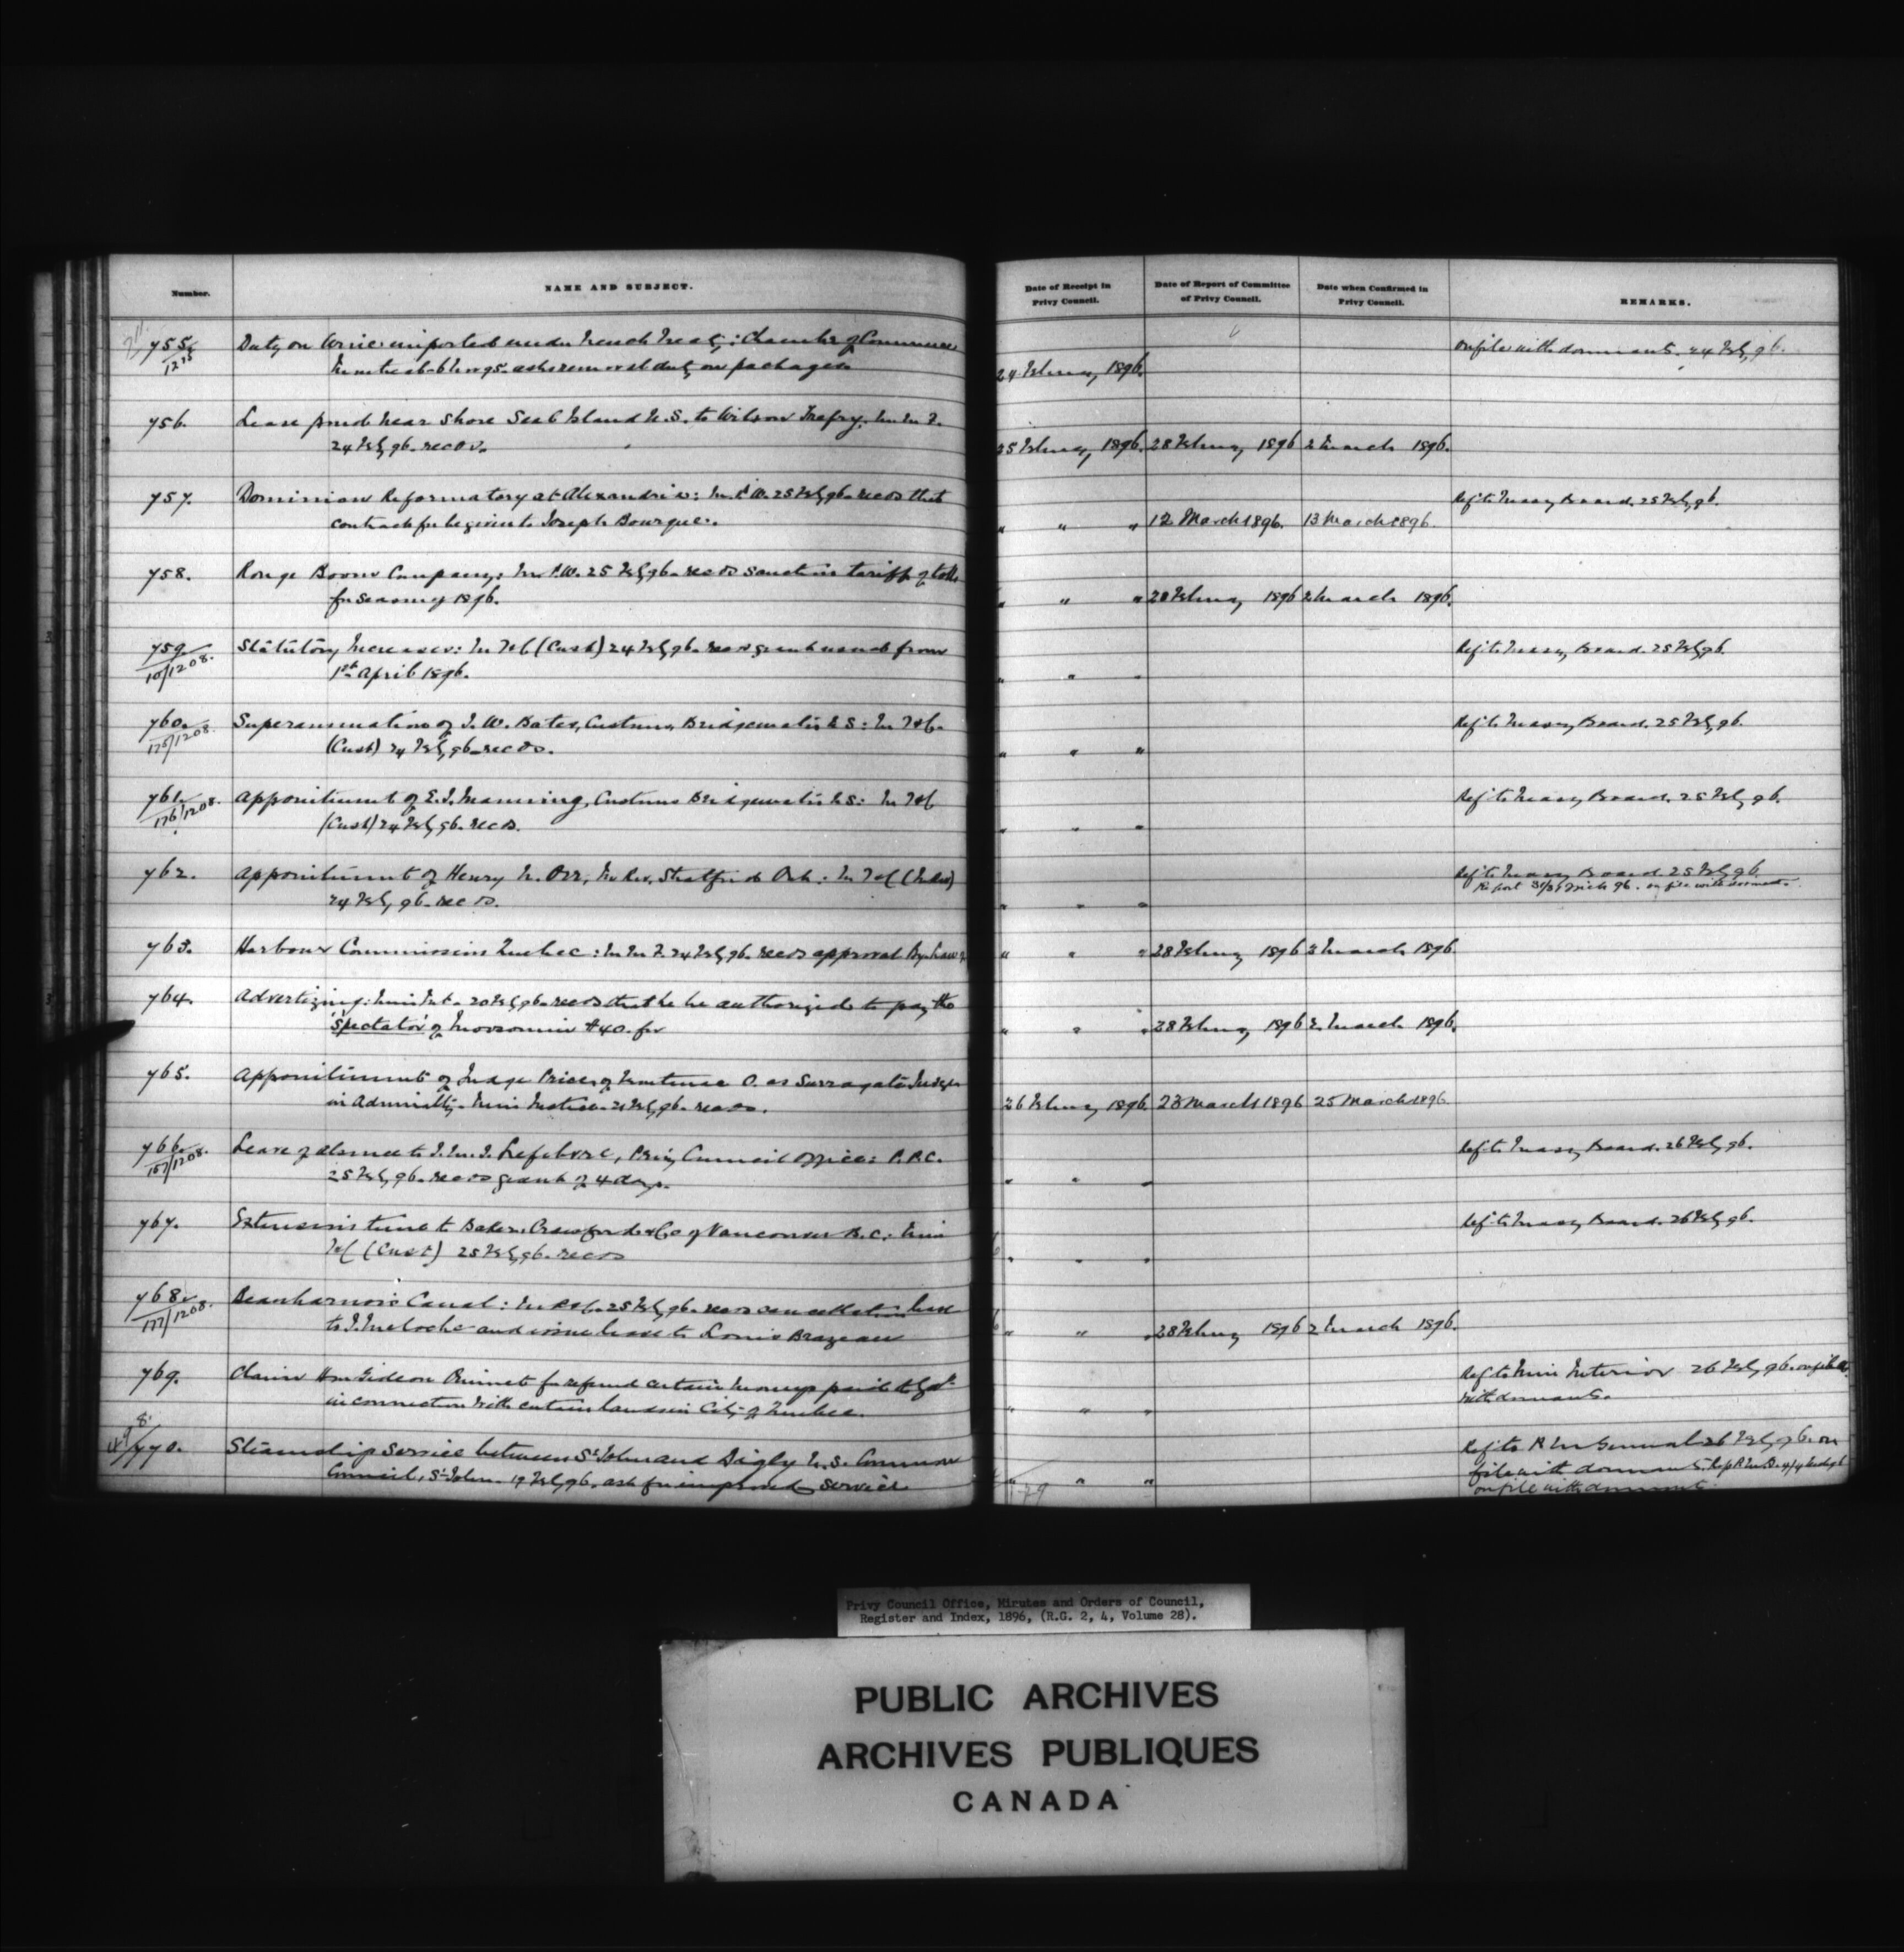 Number.
NAME AND SUBJECT.
Date of Receipt in Privy Council.
Date of Report of Committee of Privy Council.
Date when Confirmed in Privy Council.
REMARKS.
755
Duty on Wine imported under French Treaty: Chamber of Commerce
asks removal duty on packages
24 Febuary 1896.
on file with dormants. 24 Feby 96.
756.
Lease pond near Shore Seal Island N.S. to Wilson Trefry. M M F.
24 Feby 96. recds.
25 Febuary 1896.
28 Febuary 1896
2 March 1896.
757.
Dominion Reformatory at Alexandria: M.P.W. 25 Feby 96. recds that
contract for be given to Joseph Bourque.
" " "
12 March 1896.
13 March 1896.
Ref to Treasy Board. 25 Feby 96.
758.
Rouge Boom Company: M P.W. 25 Feby 96. recds sanction tariff of tolls
for season of 1896.
" " "
28 Febuary 1896
2 March 1896.
759
10/1208.
Statutory Increases: M of (Cust) 24 Feby 96. recds grant from
1st April 1896.
" " "
Ref to Treasy Board. 25 Feby 96.
760
175/1208.
Superannuation of J. W. Bates, Customs, Bridgewater N S:
(Cust) 24 Feby 96. recds.
" " "
Ref to Treasy Board. 25 Feby 96.
761
176/1208.
Appointment of E. J. Manning, Customs Bridgewater N S:
(Cust) 24 Feby 96. recds.
" " "
Ref to Treasy Board. 25 Feby 96.
762.
Appointment of Henry N. Orr, In Rev, Stratford Ont:
24 Feby 96. recds.
" " "
Ref to Treasy Board 25 Feby 96
on file with dormants.
763.
Harbour Commissions Quebec: M M F. 24 Feby 96. recds approval By-law
" " "
28 Febuary 1896
2 March 1896
764.
Advertizing: Min Int. 20 Feby 96. recds that he be authorized to pay the
'Spectator' of Moosomin $40. for
" " "
28 Febuary 1896
2 March 1896.
765.
Appointment of Judge Price of Frontenac O. as Surrogate Judge
in Admiralty. Min Justice. 21 Feby 96. recds.
26 Febuary 1896.
23 March 1896
25 March 1896.
766
157/1208.
Leave of absence to J. M. J. Lefebvre, Privy Council Office: P.P.C.
25 Feby 96. recds grant of 4 days.
" "
Ref to Treasy Board. 26 Feby 96.
767.
Extension time to Baker, Crawford & Co of Vancouver B.C.: Min
(Cust) 25 Feby 96. recds
" " "
Ref to Treasy Board. 26 Feby 96.
768
177/1208.
Beauharnois Canal: M R & C. 25 Feby 96. recds cancellation lease
to J. Meloche and issue lease to Louis Brazeau
" " "
28 Febuary 1896
2 March 1896.
769.
Claim Hon Gideon Ouimet for refund certain moneys paid to Govt
in connection with certain lands in City of Quebec.
" " "
Ref to Min Interior 26 Feby 96. on file
with dormants.
770.
Steamship Service between St John and Digby N.S. Common
Council, St John. 19 Feby 96. ask for improved service
" " "
Ref to P M General 26 Feby 96. on
file with dormants.
on file with dormants.
Privy Council Office, Minutes and Orders of Council,
Register and Index, 1896, (R.G. 2, 4, Volume 28).
PUBLIC ARCHIVES
ARCHIVES PUBLIQUES
CANADA